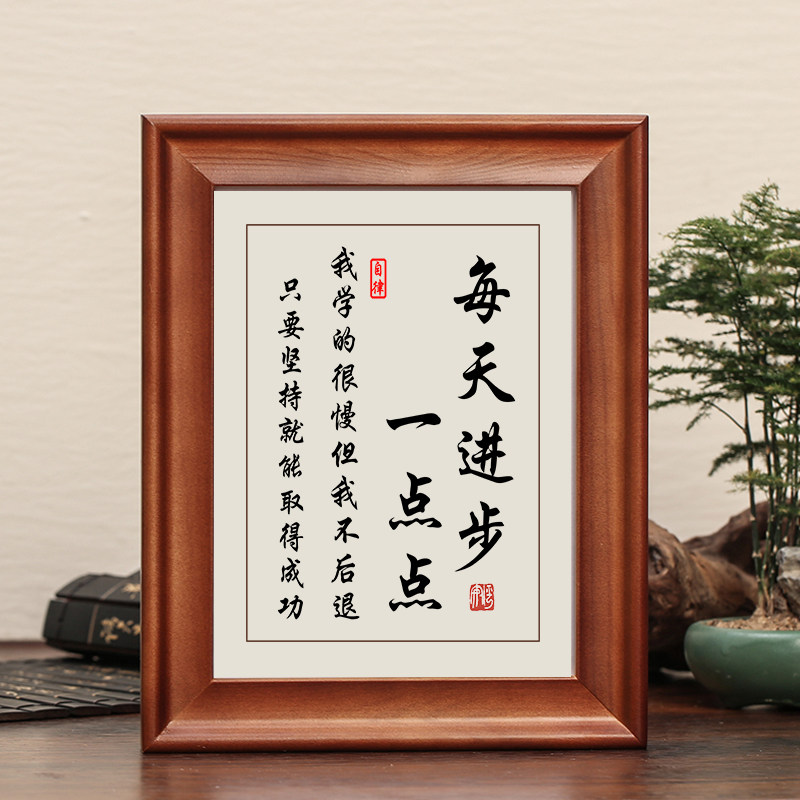 每天进步
一点点
自律
我学的很慢但我不后退
只要坚持就能取得成功